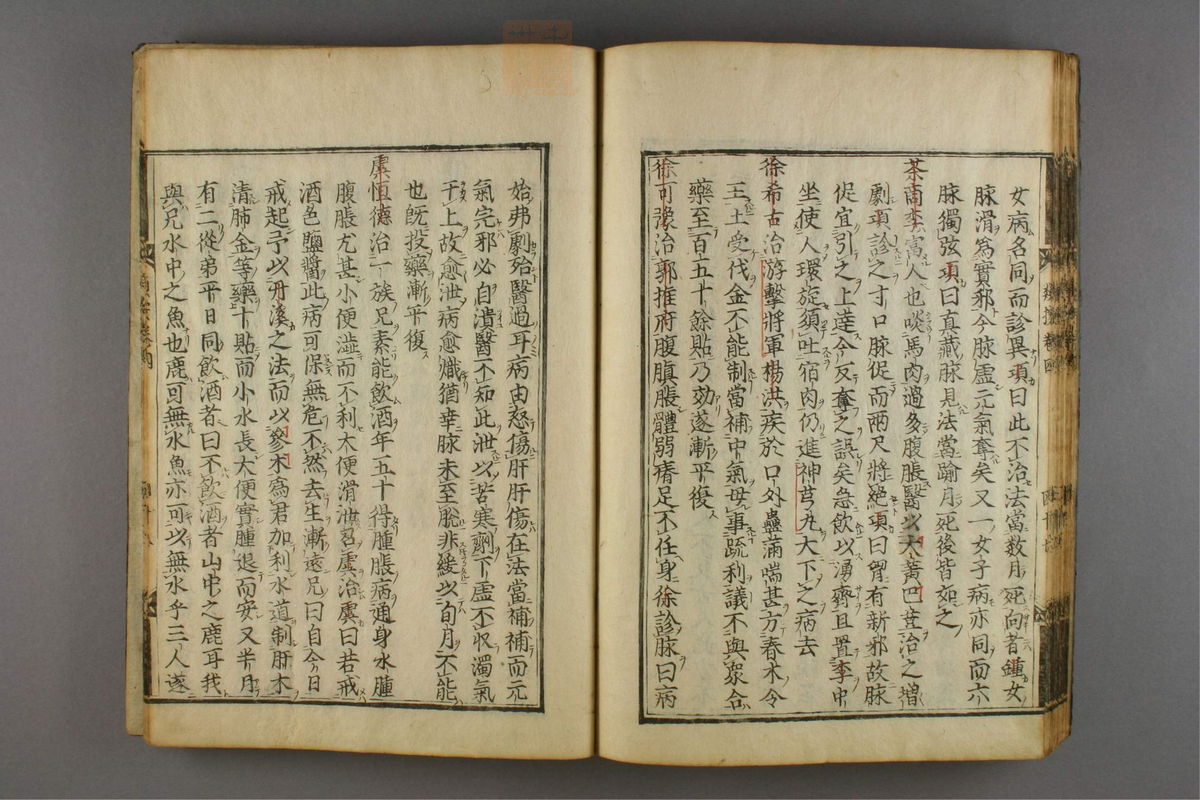 女病名同而診異項曰此不治法當数月死向者鍾女
脉滑爲實邪今脉虚元氣奪矣又一女子病亦同而六
脉獨弦項曰真藏脉見法當踰月死後皆如之
茶商李富人也啖馬肉過多腹脹醫以大黃巴荳治之增
劇項診之寸口脉促而兩尺將絶項曰胃有新邪故脉
促宜引之上達今反奪之誤矣急飲以湧齊且置李中
坐使人環旋須吐宿肉仍進神芎丸大下之病去
徐希古治游擊將軍楊洪疾於口外蠱滿喘甚方春木令
王土受伐金不能制當補中氣毋事疏利議不與眾合
藥至百五十餘貼乃効遂漸平復
徐可豫治郭推府腹䐜脹體弱瘠足不任身徐診脉曰病
始弗劇殆醫過耳病由怒傷肝肝傷在法當補補而元
氣完邪必自潰醫不知此泄以苦寒劑下虚不収濁氣
干上故愈泄病愈熾猶幸脉未至脫非緩以旬月不能
也旣投藥漸平復
虞恒德治一族兄素能飲酒年五十得腫脹病通身水腫
腹脹尤甚小便澁而不利大便滑泄召虞治虞曰若戒
酒色鹽醬此病可保無危不然去生漸遠兄曰自今日
戒起予以丹溪之法而以參朮爲君加利水道制肝木
清肺金等藥十貼而小水長大便實腫退而安又半月
有二從弟平日同飲酒者曰不飲酒者山中之鹿耳我
與兄水中之魚也鹿可無水魚亦可以無水乎三人遂